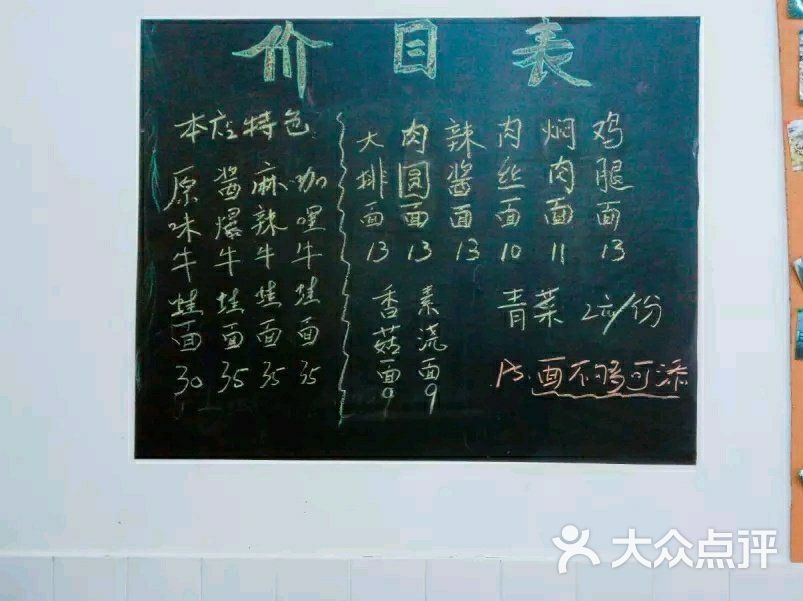 价目表
本店特色
原味牛蛙面30
酱爆牛蛙面35
麻辣牛蛙面35
咖喱牛蛙面35
大排面13
肉圆面13
辣酱面13
肉丝面10
焖肉面11
鸡腿面13
香菇面9
素浇面9
青菜 2元/份
PS.面不够可添
大众点评